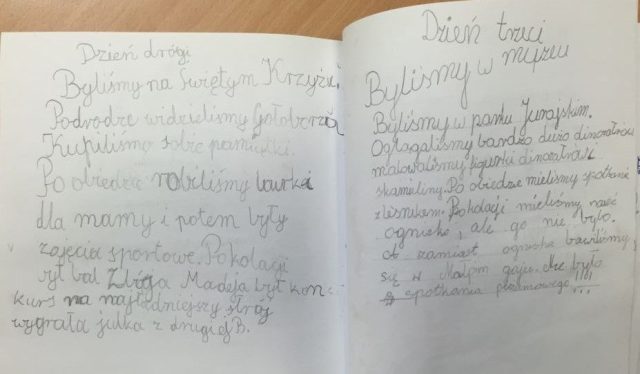 Dzień drógi
Byliśmy na Swiętym Krzyżu.
Podrodze widzieliśmy Gołoborza
Kupiliśmo sobie pamiątki.
Po obiedzie robiliśmy laurki
dla mamy i potem były
zajęcia sportowe. Pokolacji
był bal Zbója Madeja był kon-
kurs na najładniejszy strój
wygrała julka z drugiej B.
Dzień trzeci
Byliśmy w muzeu
Byliśmy w parku Jurajskim.
Oglągaliśmy bardzo dużo dinozałrów
malowaliśmy figurki dinozałrów i
skamieliny. Po obiedzie mieliśmy spotkanie
z leśnikem. Pokolacji mieliśmy mieć
ognisko, ale go nie było.
zamiast ogniska bawiliśmy
się w Małpim gaju. Nie było
spotkania plemiowego!!!!